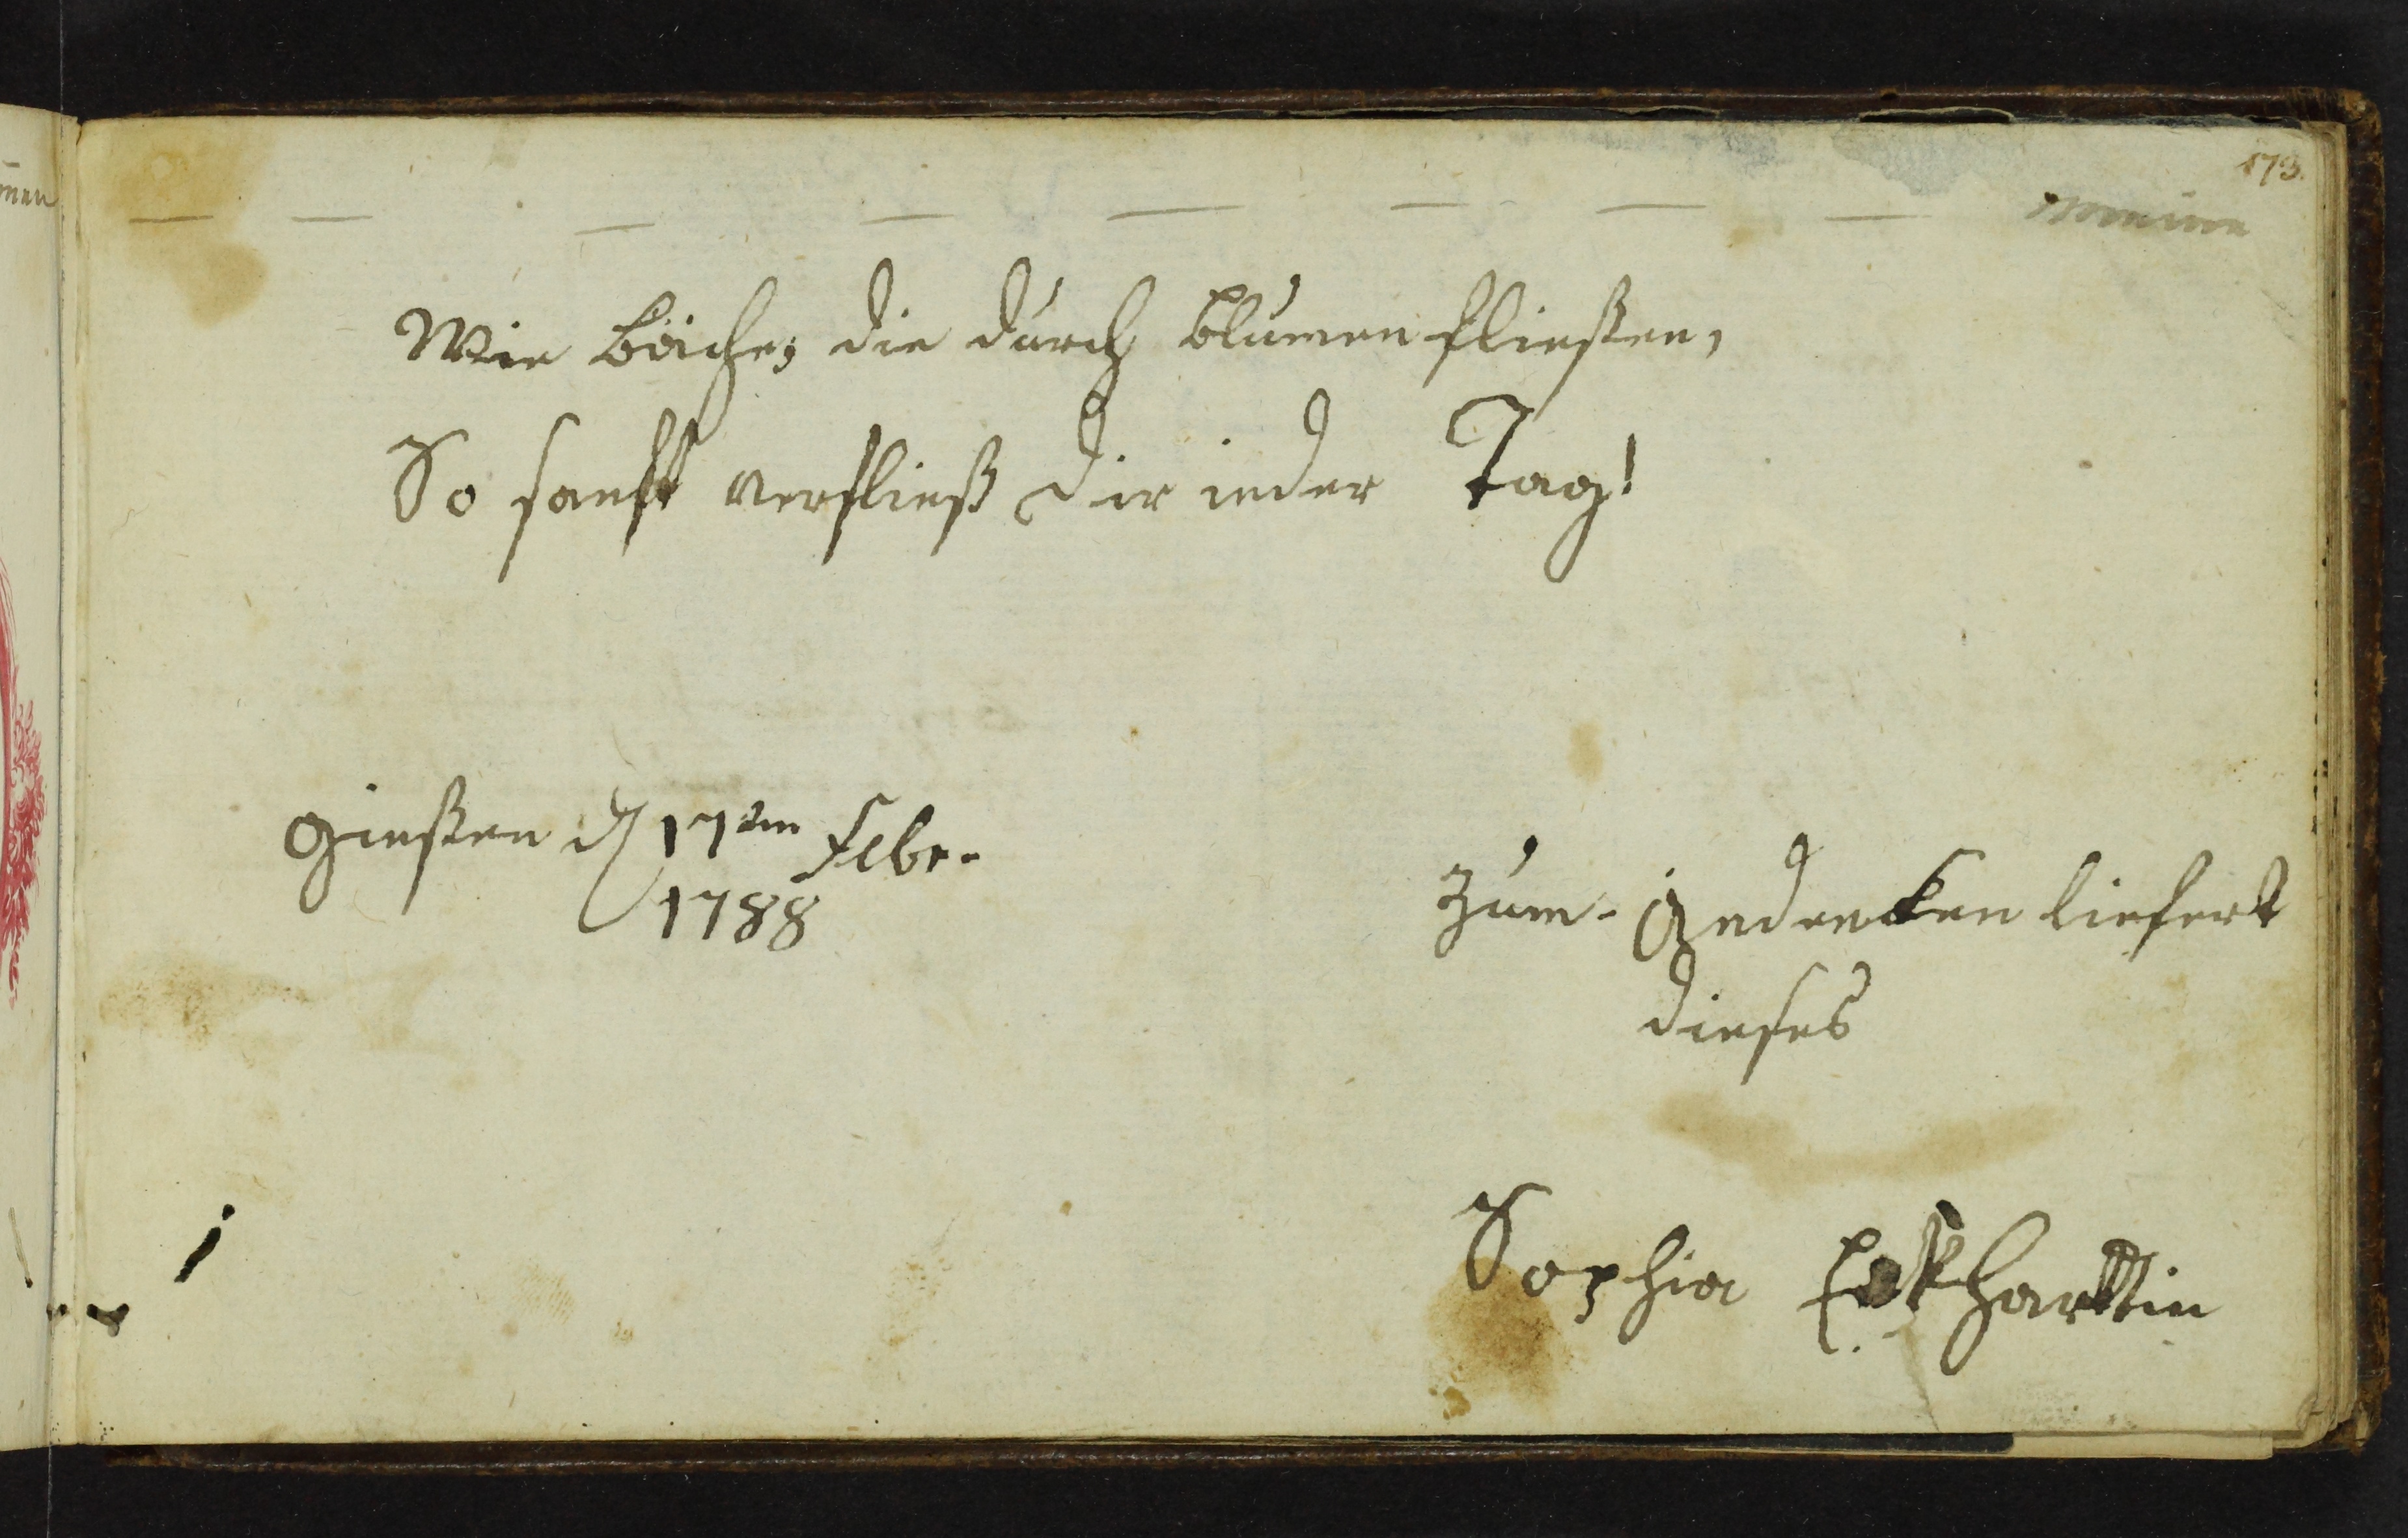 173.
Wie Bäche, die durch Blumen fließen,
So sanft verfließ Dir ieder Tag!
Gießen d 17ten Febr.
1788
Zum Andencken liefert
dieses
Sophia Eckharttin